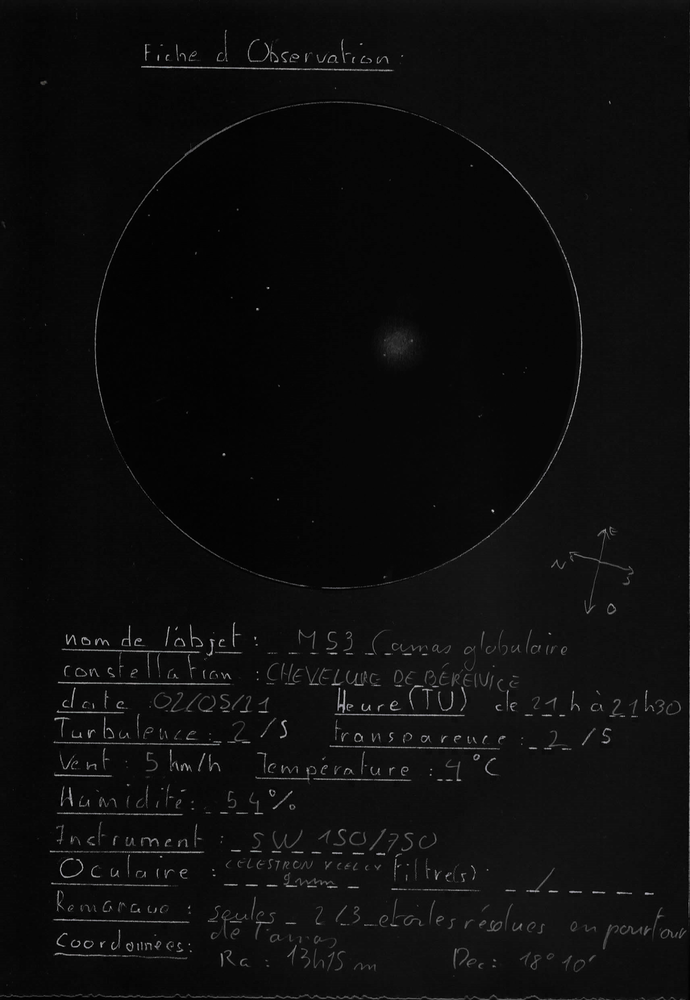 Fiche d Observation :
N E S O
nom de l'objet : M 53 (amas globulaire
constellation : CHEVELURE DE BÉRÉNICE
date 02/05/21 Heure (TU) de 21 h à 21h30
Turbulence : 2 /5 transparence : 2 /5
Vent : 5 km/h Température : 4 °C
Humidité : 54%
Instrument : SW 150/750
Oculaire : CELESTRON XCELLX Filtre(s) : /
9mm
Remarque : seules 2/3 etoiles résolues en pourtour
de l'amas
Coordonnées :
Ra : 13h15 m Dec : 18° 10'